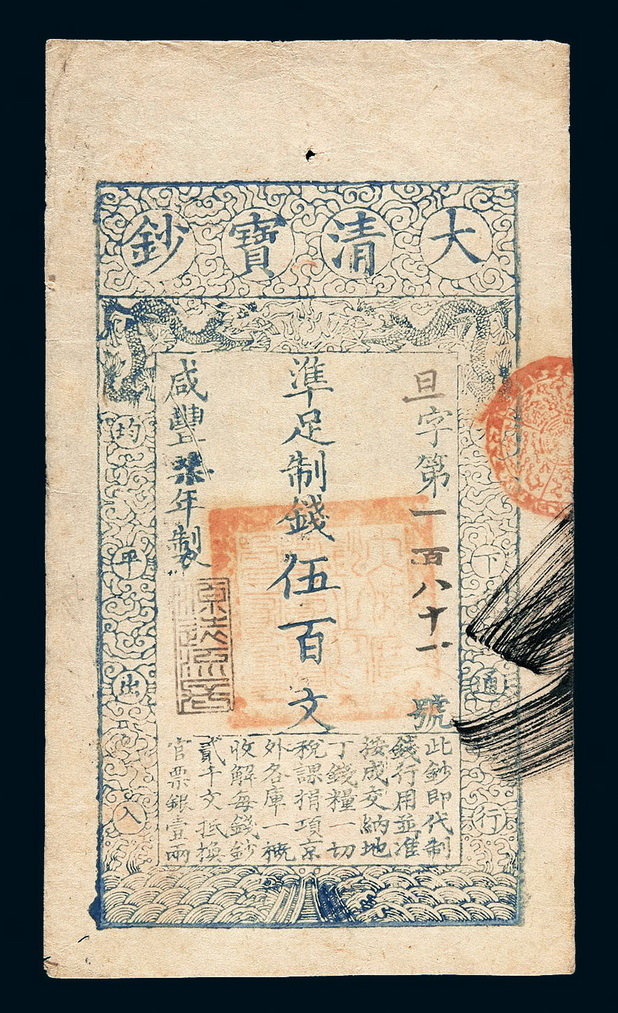 大清寶鈔
下通行
均平出入
旦字第一百八十一號
準足制錢伍百文
咸豐柒年製
此鈔即代制
錢行用並准
按成交納地
丁錢糧一切
稅課捐項京
外各庫一概
收解每錢鈔
貳千文抵換
官票銀壹兩